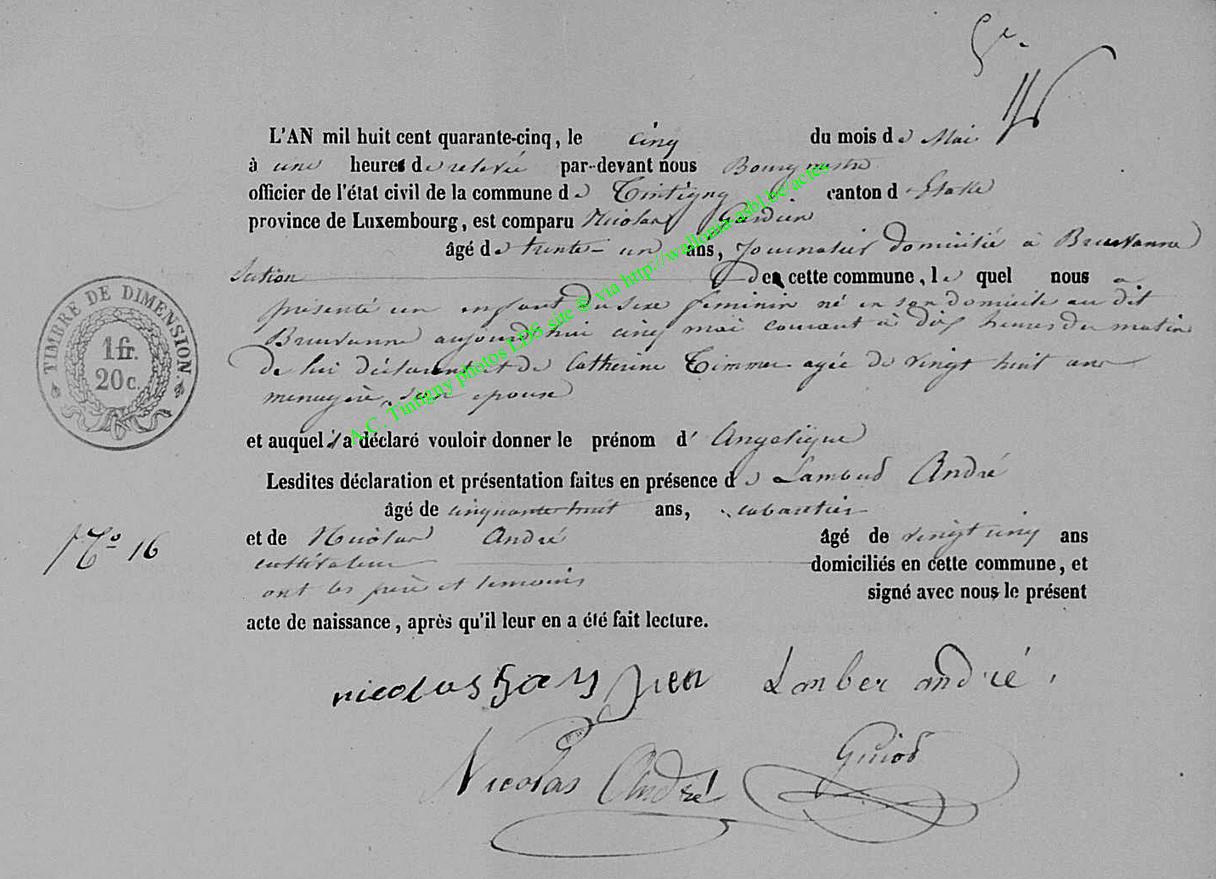 L'AN mil huit cent quarante-cinq, le cinq du mois de Mai
à une heures de relevée par-devant nous Bourgmestre
officier de l'état civil de la commune de Tintigny canton d'Etalle
province de Luxembourg, est comparu Nicolas
âgé de trente-un ans, Journalier domicilié à Breuvanne
Section de cette commune, le quel nous a
présenté un enfant du sexe féminin né en son domicile au dit
Breuvanne aujourd'hui cinq mai courant à dix heures du matin
de lui déclarant et de Catherine Timmer agée de vingt huit ans
menagère, son epouse
et auquel il a déclaré vouloir donner le prénom d' Angelique
Lesdites déclaration et présentation faites en présence de Lambert André
âgé de cinquante huit ans, cabaretier
N° 16
et de Nicolas André âgé de vingt cinq ans
cultivateur domiciliés en cette commune, et
ont les père et temoins signé avec nous le présent
acte de naissance, après qu'il leur en a été fait lecture.
nicolas Lamber andré.
Nicolas André
TIMBRE DE DIMENSION
1 fr.
20 c.
A.C. Tintigny photos LDS site © via http://wallonia.asbl.be/actes